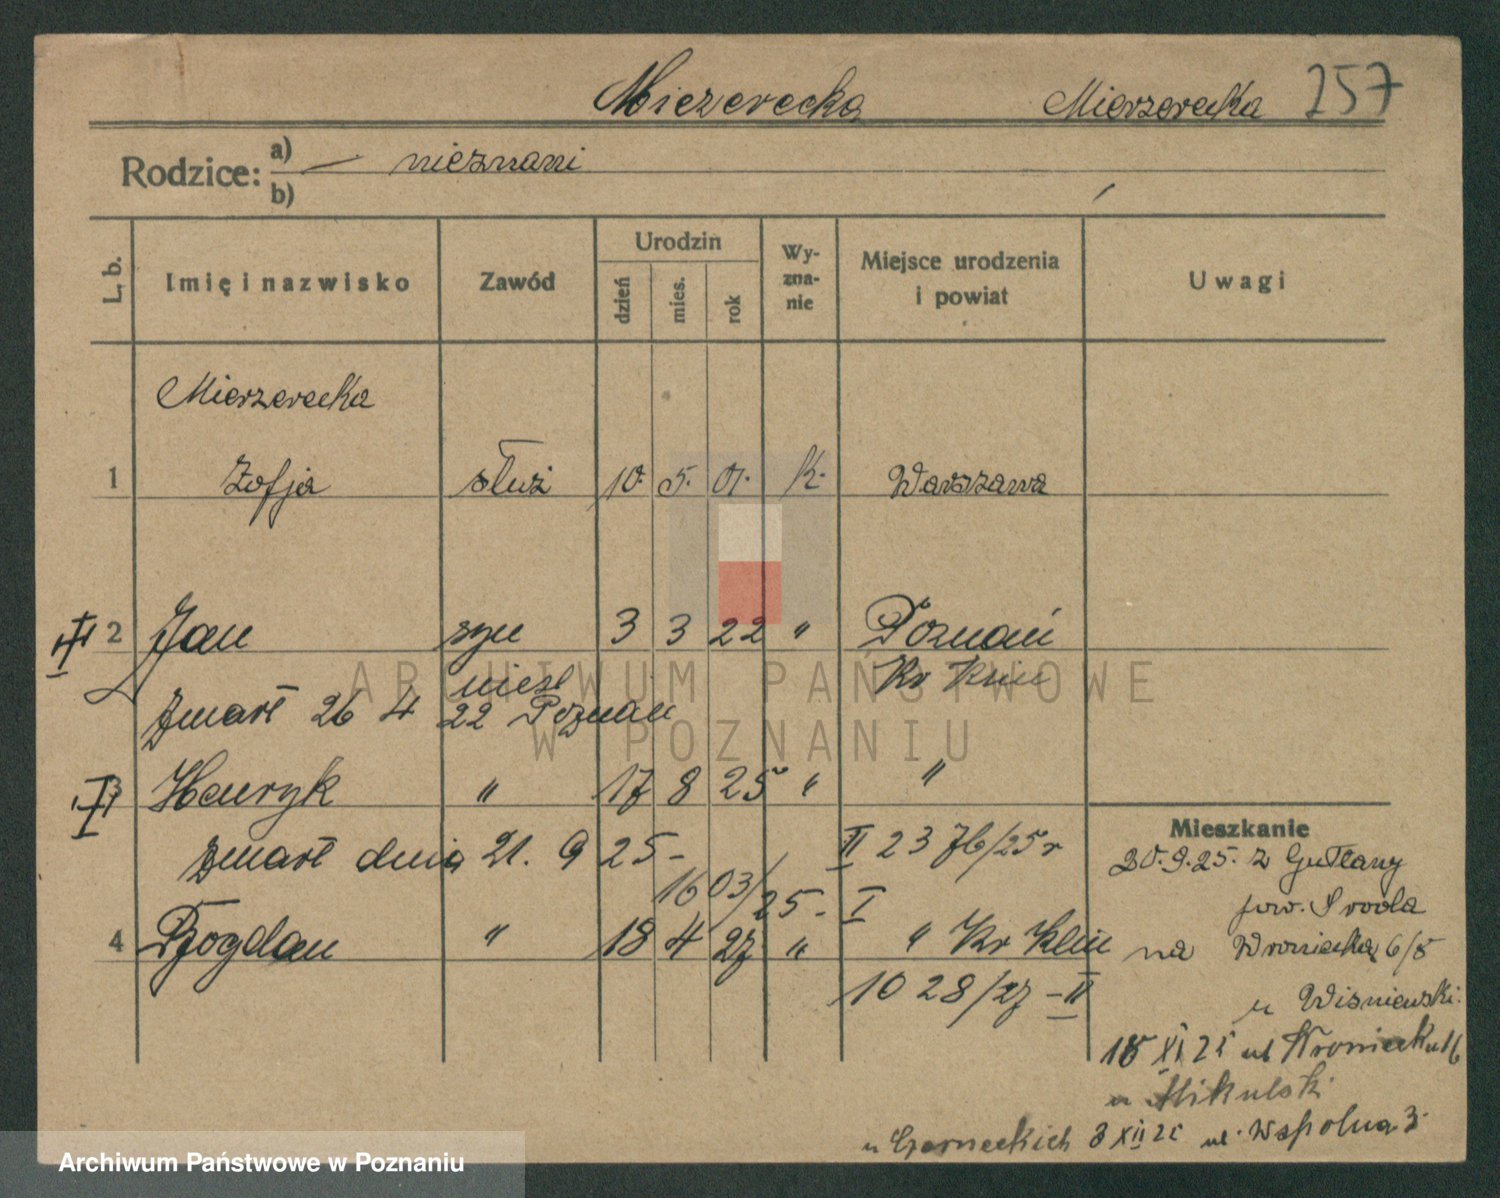 Miezerecka Mierzerecka 257
Rodzice: a) — nieznani
b)
L. b. Imię i nazwisko Zawód Urodzin dzień mies. rok Wyznanie Miejsce urodzenia i powiat Uwagi
Mierzerecka
1 Zofja służ 10. 5. 01. k. Warszawa
III 2 Jan syn 3 3 22 " Poznań
nieśl Kr Klin
Zmarł 26 4 22 Poznań
ARCHIWUM PAŃSTWOWE
W POZNANIU
3 Henryk " 17 8 25 " "
zmarł dnia 21. 9 25- II 23 76/25 r
1603/25 - I
4 Bogdan " 18 4 27 " " Kr Klin
10 28/27 - II
Mieszkanie
20.9.25. z
pow. Sroda
na Wroniecka 6/8
u Wisniewski.
18 XI 25 ul Wroniecka 16
u Mikulski
u Czarneckich 3 XII 25 ul. Wspolna 3.
Archiwum Państwowe w Poznaniu